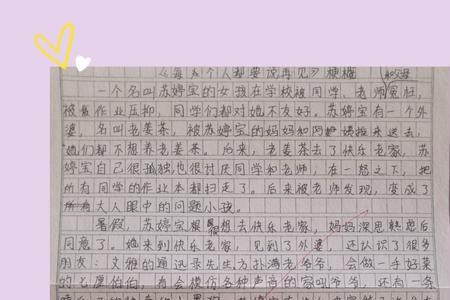 《每个人都要说再见》梗概
一个名叫苏婷宝的女孩在学校被同学、老师冤枉,
被作业压抑,同学们都对她不友好。苏婷宝有一个外
婆,名叫老姜茶,被苏婷宝的妈妈和阿姨推来送去,
她们都不想养老姜茶。后来,老姜茶去了快乐老家,苏
婷宝自己很孤独也很讨厌同学和老师,在一怒之下,把
所有同学的作业本都扫走了。后来被老师发现,变成了
大人眼中的问题小孩。
暑假,苏婷宝很想去快乐老家,妈妈深思熟虑后
同意了。她来到快乐老家,见到了外婆,还认识了很多
朋友:文雅的通迅录先生,方扑满老爷爷,会做一手好菜
的伯伯,有会模仿各种声音的爷爷,还有一条